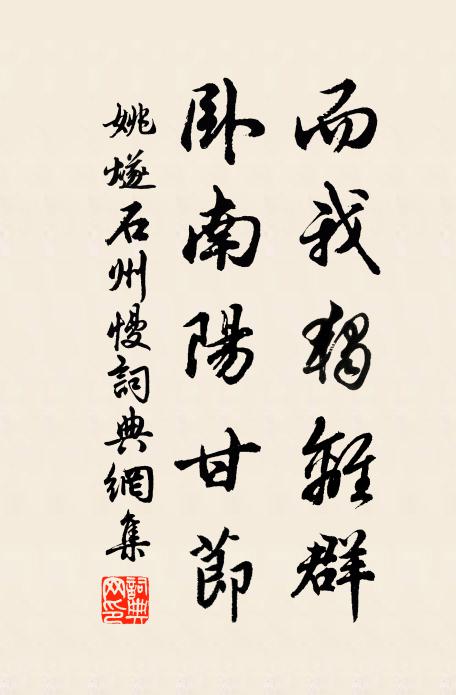 而我獨離群
臥南陽甘節
姚燧石州慢詞典網集
詞典網印